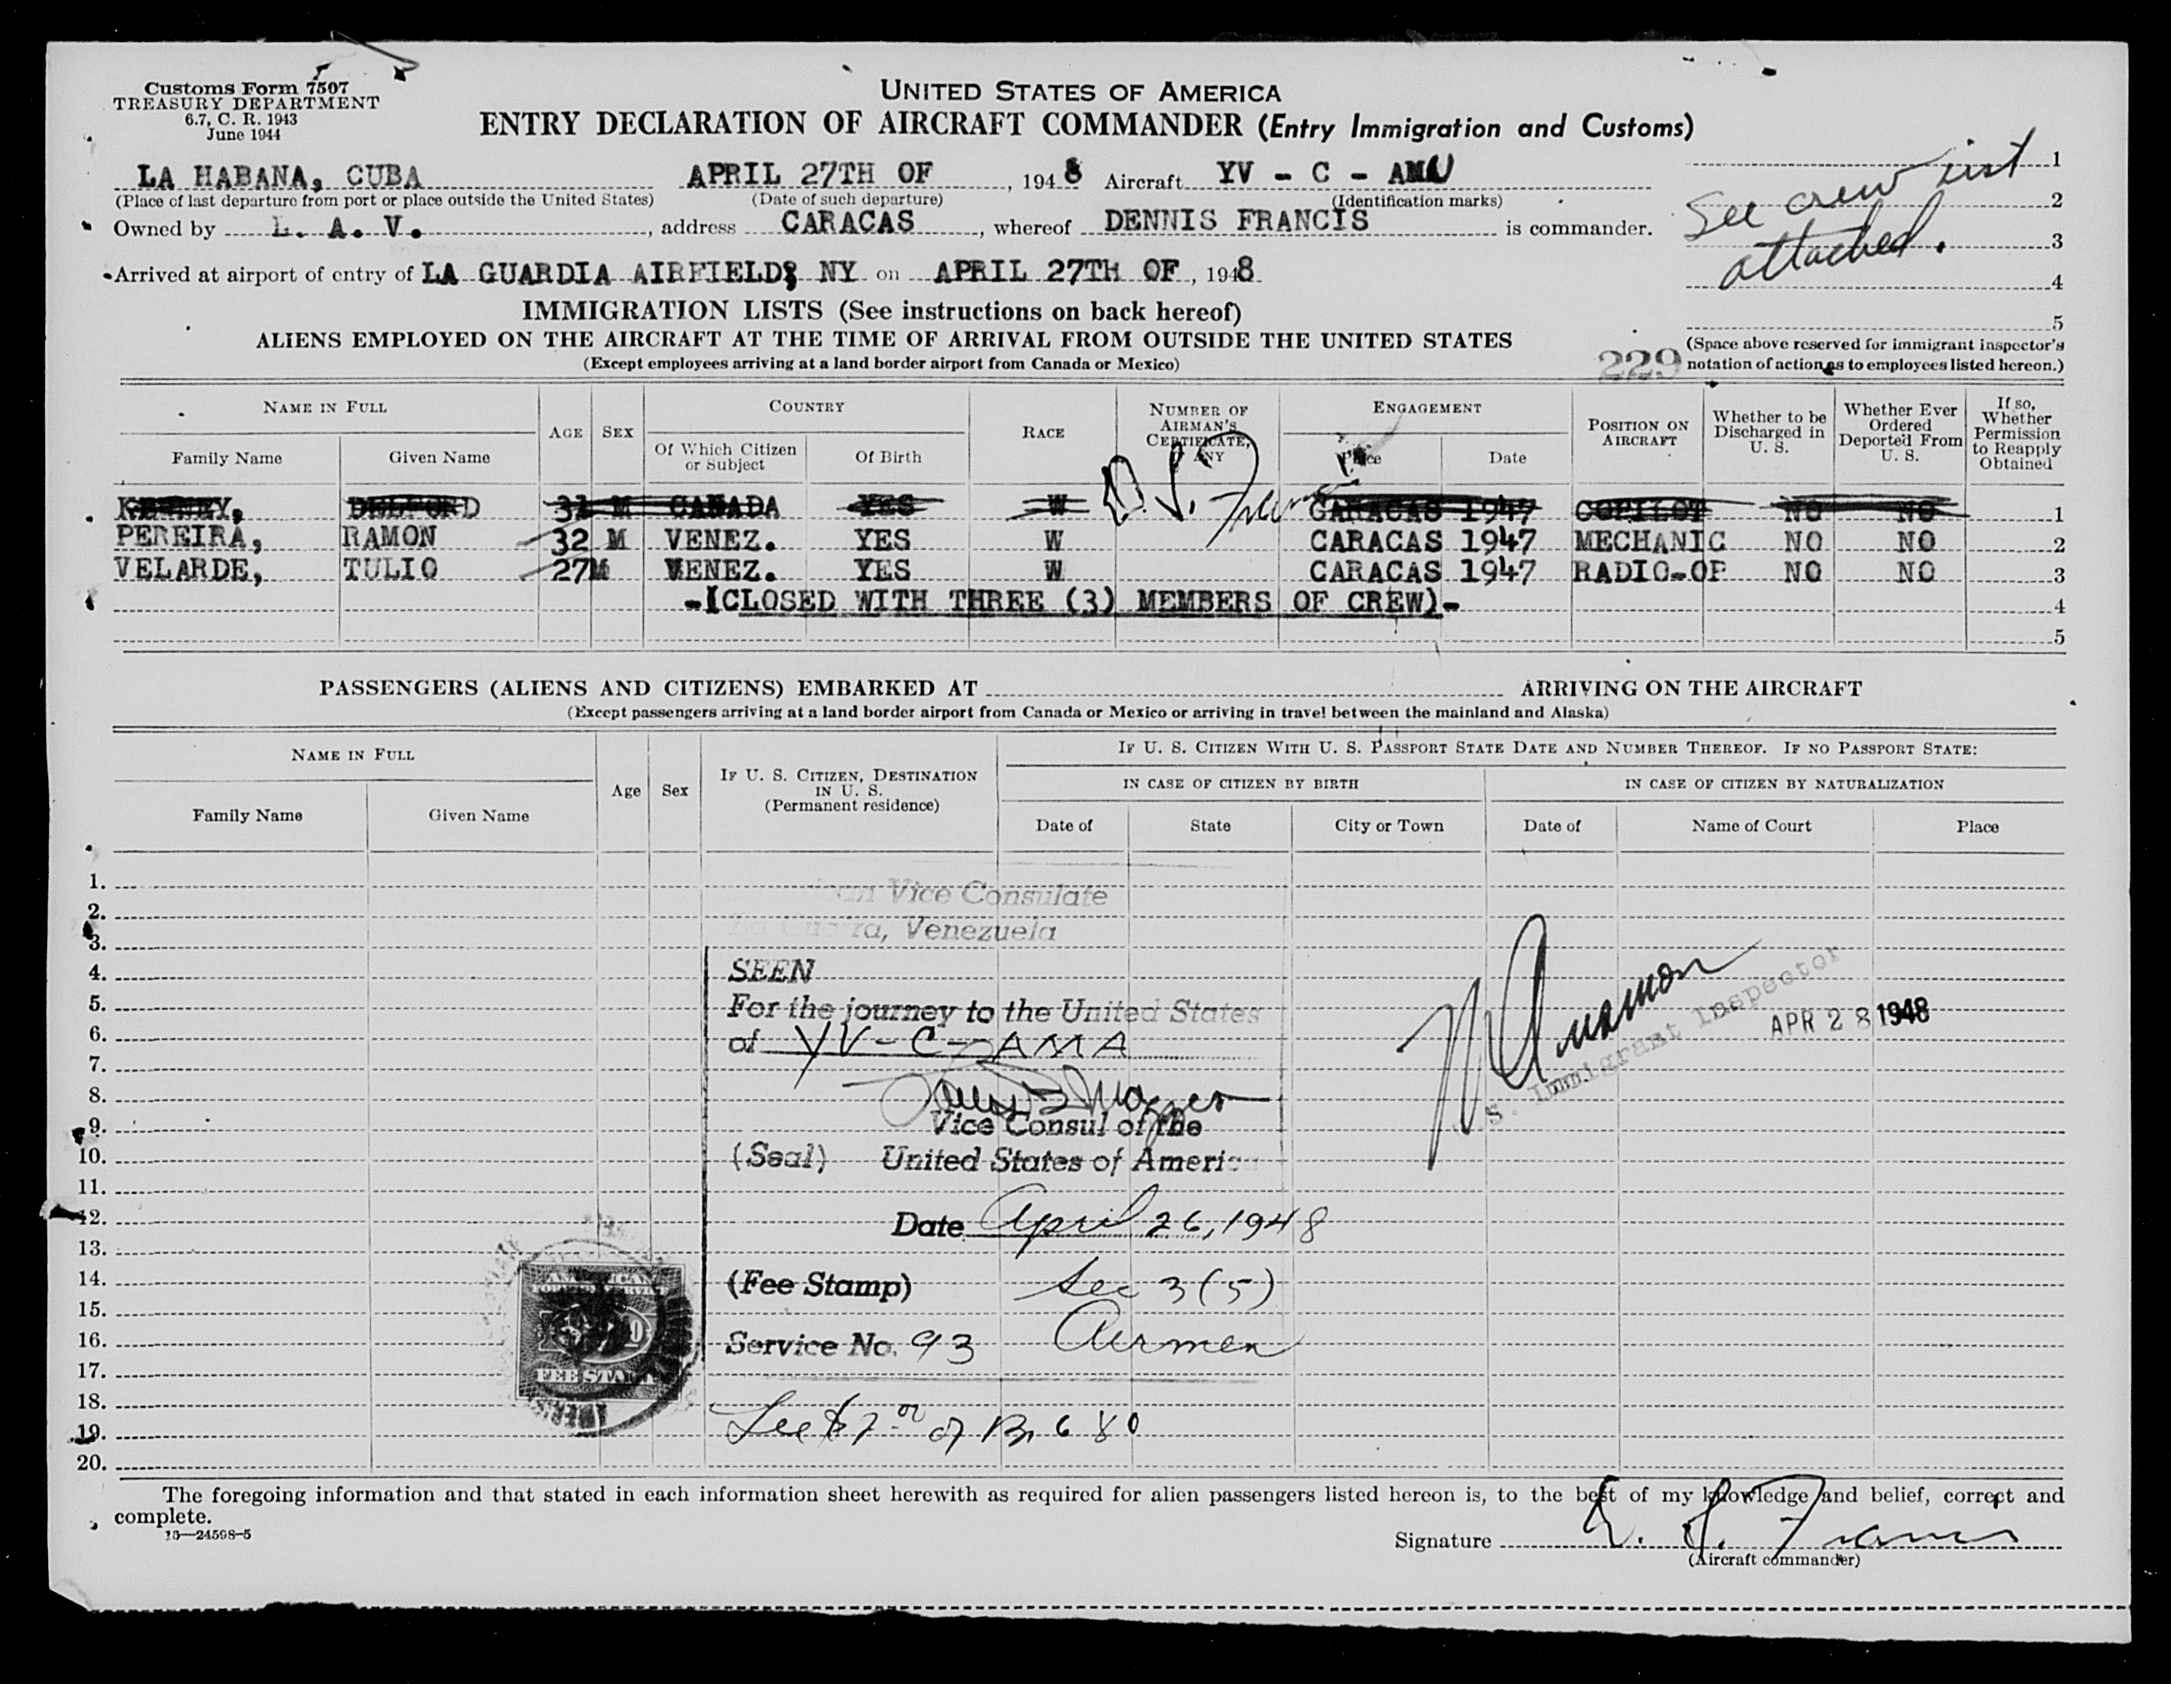 Customs Form 7507
TREASURY DEPARTMENT
6.7, C. R. 1943
June 1944
UNITED STATES OF AMERICA
ENTRY DECLARATION OF AIRCRAFT COMMANDER (Entry Immigration and Customs)
LA HABANA, CUBA APRIL 27TH OF, 1948 Aircraft YV - C - AM
(Place of last departure from port or place outside the United States) (Date of such departure) (Identification marks)
Owned by L. A. V., address CARACAS, whereof DENNIS FRANCIS is commander.
Arrived at airport of entry of LA GUARDIA AIRFIELD, NY on APRIL 27TH OF, 1948
1
2
3
4
5
See crew list
attached.
(Space above reserved for immigrant inspector's
notation of action as to employees listed hereon.)
229
IMMIGRATION LISTS (See instructions on back hereof)
ALIENS EMPLOYED ON THE AIRCRAFT AT THE TIME OF ARRIVAL FROM OUTSIDE THE UNITED STATES
(Except employees arriving at a land border airport from Canada or Mexico)
NAME IN FULL AGE SEX COUNTRY RACE NUMBER OF AIRMAN'S CERTIFICATE, IF ANY ENGAGEMENT POSITION ON AIRCRAFT Whether to be Discharged in U. S. Whether Ever Ordered Deported From U. S. If so, Whether Permission to Reapply Obtained
Family Name Given Name Of Which Citizen or Subject Of Birth Place Date
31 M CANADA YES W D. S. Francis CARACAS 1947 COPILOT NO NO 1
PEREIRA, RAMON 32 M VENEZ. YES W CARACAS 1947 MECHANIC NO NO 2
VELARDE, TULIO 27M VENEZ. YES W CARACAS 1947 RADIO-OP NO NO 3
-(CLOSED WITH THREE (3) MEMBERS OF CREW)- 4
5
PASSENGERS (ALIENS AND CITIZENS) EMBARKED AT ARRIVING ON THE AIRCRAFT
(Except passengers arriving at a land border airport from Canada or Mexico or arriving in travel between the mainland and Alaska)
NAME IN FULL Age Sex IF U. S. CITIZEN, DESTINATION IN U. S. (Permanent residence) IF U. S. CITIZEN WITH U. S. PASSPORT STATE DATE AND NUMBER THEREOF. IF NO PASSPORT STATE:
IN CASE OF CITIZEN BY BIRTH IN CASE OF CITIZEN BY NATURALIZATION
Family Name Given Name Date of State City or Town Date of Name of Court Place
1.
Vice Consulate
2.
Venezuela
3.
4. SEEN
5. For the journey to the United States
6. of YV-C-AMA
7.
8.
9. Vice Consul of the
10. (Seal) United States of America
11.
12. Date April 26, 1948
13.
14. (Fee Stamp) Sec 3(5)
15.
16. Service No. 93 Airmen
17.
18.
19.
20.
Immigrant Inspector
APR 28 1948
AMERICAN
FOREIGN SERVICE
FEE STAMP
The foregoing information and that stated in each information sheet herewith as required for alien passengers listed hereon is, to the best of my knowledge and belief, correct and
complete.
16—24598-5
Signature D. S. Francis
(Aircraft commander)